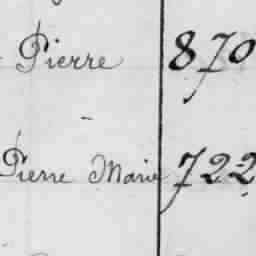 Pierre 870
Pierre Marie 722